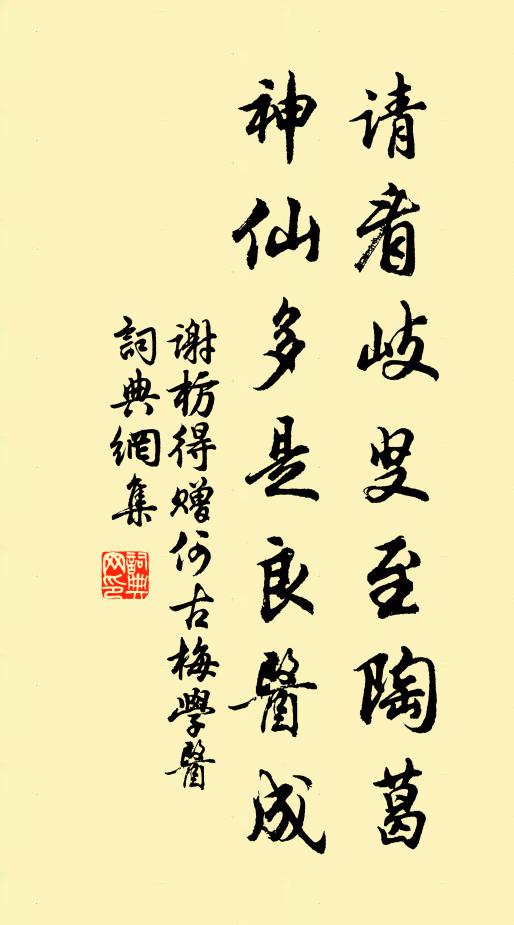 请看岐叟至陶葛
神仙多是良醫成
谢枋得赠何古梅學醫
詞典網集
詞典网印